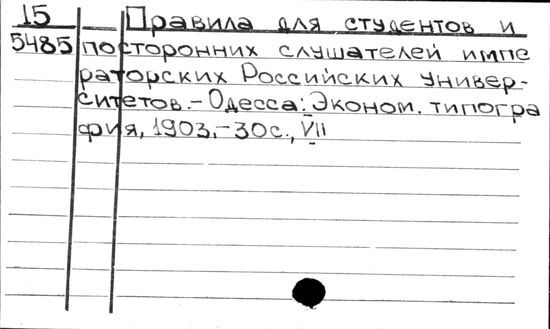 15 Правила для студентов и
5485 посторонних слушателей импе
раторских Российских универ-
ситетов.-Одесса: Эконом. типогра
фия, 1903.-30с., VII